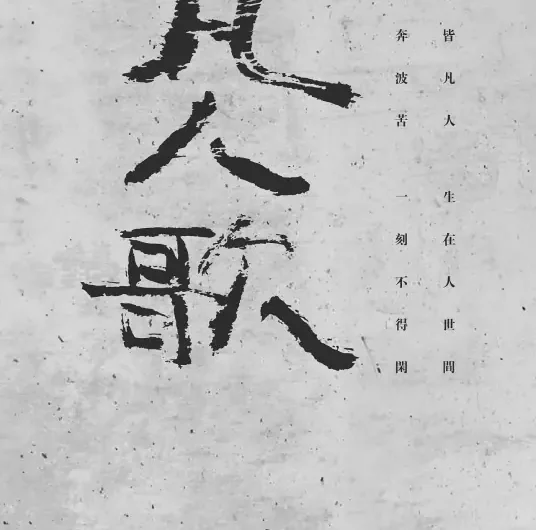 皆凡人 生在人世間
奔波苦 一刻不得閑
凡人歌